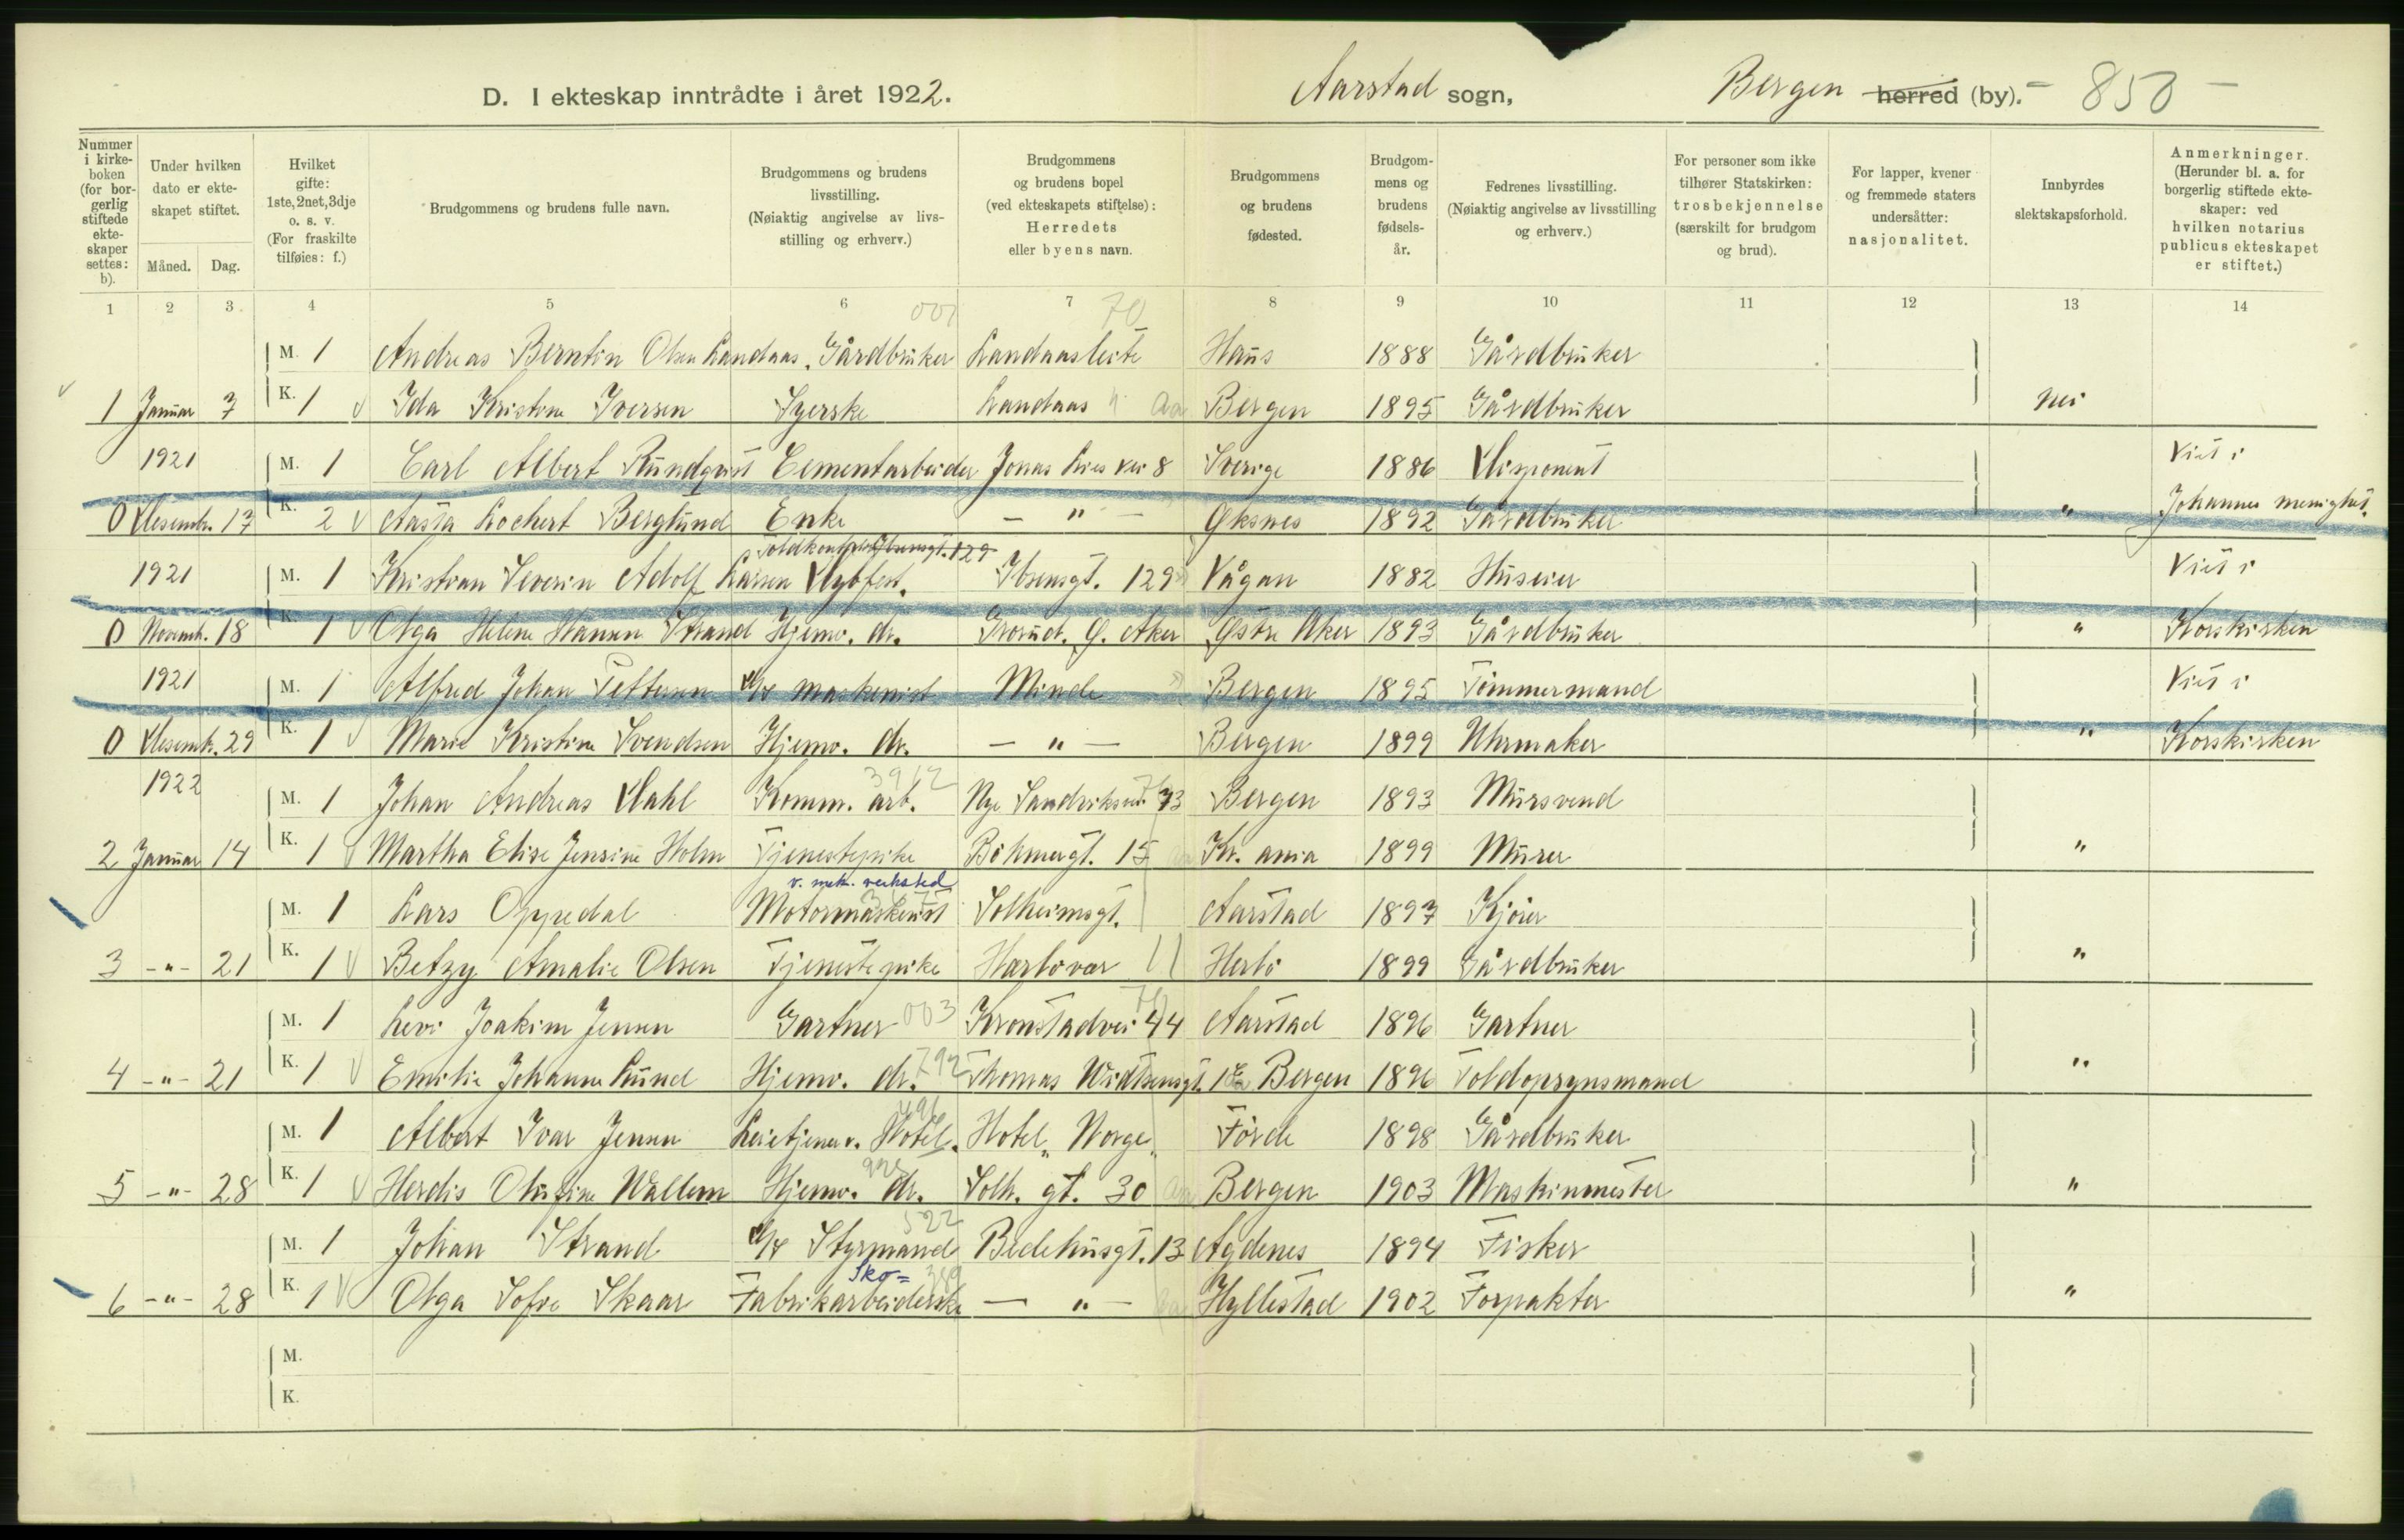 D. I ekteskap inntrådte i året 1922.
Aarstad sogn,
Bergen herred (by). – 850 –
Nummer i kirke-boken (for bor-gerlig stiftede ekte-skaper settes: b).
Under hvilken dato er ekte-skapet stiftet.
Måned. Dag.
Hvilket gifte: 1ste, 2net, 3dje o. s. v. (For fraskilte tilføies: f.)
Brudgommens og brudens fulle navn.
Brudgommens og brudens livsstilling. (Nøiaktig angivelse av livs-stilling og erhverv.)
Brudgommens og brudens bopel (ved ekteskapets stiftelse): Herredets eller byens navn.
Brudgommens og brudens fødested.
Brudgom-mens og brudens fødsels-år.
Fedrenes livsstilling. (Nøiaktig angivelse av livsstilling og erhverv.)
For personer som ikke tilhører Statskirken: trosbekjennelse (særskilt for brudgom og brud).
For lapper, kvener og fremmede staters undersåtter: nasjonalitet.
Innbyrdes slektskapsforhold.
Anmerkninger. (Herunder bl. a. for borgerlig stiftede ekte-skaper: ved hvilken notarius publicus ekteskapet er stiftet.)
1 2 3 4 5 6 7 8 9 10 11 12 13 14
001 70
M. 1 Andreas Berntin Olsen Landaas. Gårdbruker Landaasleite Haus 1888 Gårdbruker
1 Januar 7 K. 1 Ida Kristine Iversen Syerske Landaas Bergen 1895 Gårdbruker nei
1921 M. 1 Carl Albert Rundqvist Cementarbeider Jonas Lies vei 8 Sverige 1886 Disponent Viet i
0 Desembr. 17 K. 2 Aasta Lochert Berglund Enke – " – Øksnes 1892 Gårdbruker " Johannes menighet.
Toldkontrolør Ibsensgt. 129
1921 M. 1 Kristian Severin Adolf Larsen Dybfest. Ibsensgt. 129 Vågan 1882 Huseier Viet i
0 Novemb. 18 K. 1 Olga Helene Hansen Strand Hjemv. dr. Grorud. Ø. Aker Østre Aker 1893 Gårdbruker " Korskirken
1921 M. 1 Alfred Johan Pettersen D/S maskinist Minde Bergen 1895 Tømmermand Viet i
0 Desemb. 29 K. 1 Marie Kristine Svendsen Hjemv. dr. – " – Bergen 1899 Uhrmaker " Korskirken
1922 M. 1 Johan Andreas Dahl Komm. arb. Nye Sandviksvei 73 Bergen 1893 Mursvend
2 Januar 14 K. 1 Martha Elise Jensine Holm Tjenestepike Böhmergt. 15 Kr. ania 1899 Murer "
v. mek. verksted
M. 1 Lars Oppedal Motormaskinist Solheimsgt. Aarstad 1897 Kjører
3 –"– 21 K. 1 Betzy Amalie Olsen Tjenestepike Harlovar Herlö 1899 Gårdbruker "
M. 1 Levi Joakim Jensen Gartner 003 Kronstadvei 44 Aarstad 1896 Gartner
4 –"– 21 K. 1 Emilie Johanne Lund Hjemv. dr. 792 Thomas Wodtsensgt. Bergen 1896 Toldopsynsmand "
M. 1 Albert Ivar Jensen Leietjener v. Hotel. Hotel „Norge„ Förde 1898 Gårdbruker
5 –"– 28 K. 1 Herdis Olufine Wallem Hjemv. dr. Solh. gt. 30 Bergen 1903 Maskinmester "
M. 1 Johan Strand D/S Styrmand 522 Bedehusgt. 13 Agdenes 1894 Fisker
Sko=
6 –"– 28 K. 1 Olga Sofie Skaar Fabrikarbeiderske – " – Hyllestad 1902 Forpakter "
M.
K.